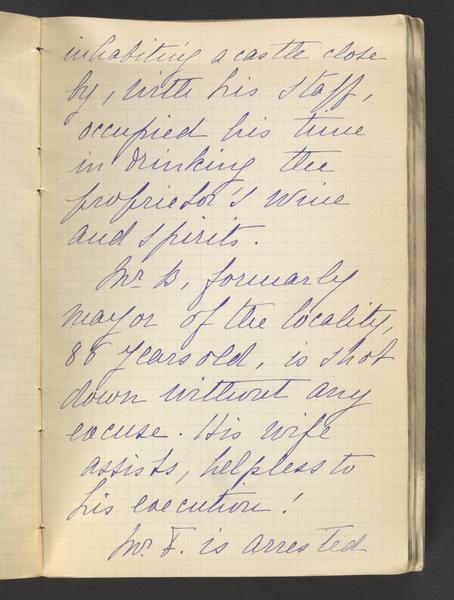 inhabiting a castle close
by, with his staff,
occupied his time
in drinking the
proprietor's wine
and spirits.
Mr. B, formarly
mayor of the locality,
86 years old, is shot
down without any
excuse. His wife
assists, helpless to
his execution!
Mr. F. is arrested